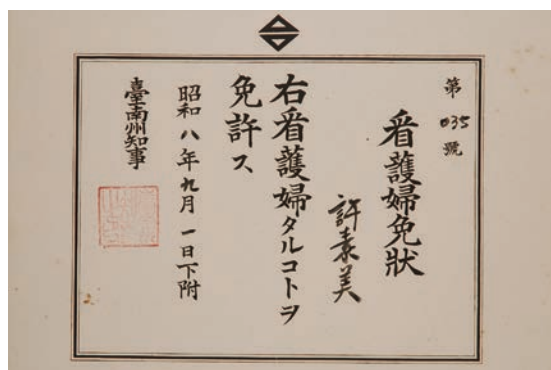 第035號
看護婦免狀
許素美
右看護婦タルコトヲ
免許ス
昭和八年九月一日下附
臺南州知事